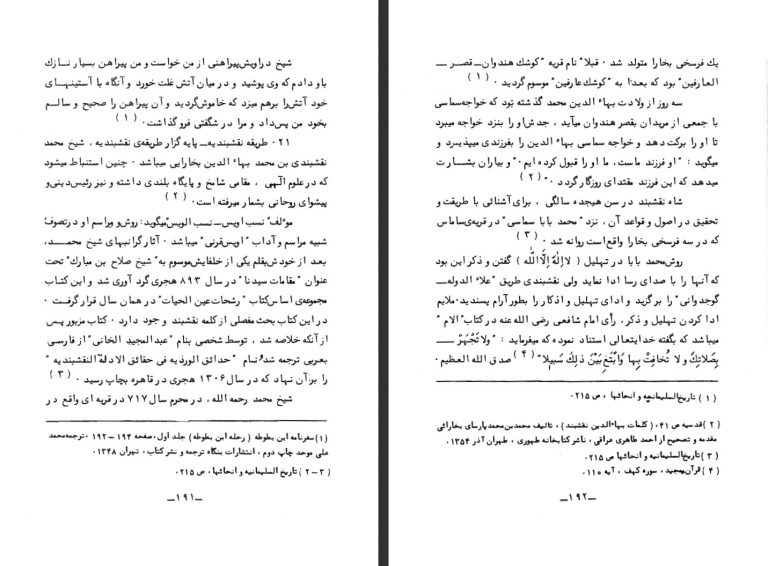 شیخ دراویش پیراهنی از من خواست و من پیراهن بسیار نازك
باو دادم که وی پوشید و در میان آتش غلت خورد و آنگاه با آستینهای
خود آتش را برهم میزد که خاموش گردید و آن پیراهن را صحیح و سالم
بخود من پس داد و مرا در شگفتی فرو گذاشت ۰ (۱)
۲۱ ۰ طریقه نقشبندیه ــ پایه گزار طریقه‌ی نقشبندیه ، شیخ محمد
نقشبندی بن محمد بهاء الدین بخارایی میباشد ۰ چنین استنباط میشود
که در علوم الٓهی ، مقامی شامخ و پایگاه بلندی داشته و نیز رئیس دینی و
پیشوای روحانی بشمار میرفته است ۰ (۲)
مؤلف " نسب اویس ــ نسب الویس میگوید : روش و مراسم او در تصوف
شبیه مراسم و آداب " اویس قرنی " میباشد ۰ آثار گرانبهای شیخ محمد ،
بعد از خودش بقلم یکی از خلفایش موسوم به " شیخ صلاح بن مبارك " تحت
عنوان " مقامات سیدنا " در سال ۸۹۳ هجری گرد آوری شد و این کتاب
مجموعه‌ی اساس کتاب " رشحات عین الحیات " در همان سال قرار گرفت ۰
در این کتاب بحث مفصلی از کلمه نقشبند و جود دارد ۰ کتاب مزبور پس
از آنکه خلاصه شد ، توسط شخصی بنام " عبدالمجید الخانی " از فارسی
بعربی ترجمه شد و نام " حدائق الوردیه فی حقائق الادلة النقشبندیه "
را بر آن نهاد که در سال ۱۳۰۶ هجری در قاهره بچاپ رسید ۰ (۳)
شیخ محمد رحمه الله ، در محرم سال ۷۱۷ در قریه ای واقع در
(۱) سفرنامه ابن بطوطه ( رحله ابن بطوطه ) جلد اول ، صفحه ۱۹۴ ــ ۱۹۲ ، ترجمه محمد
علی موحد چاپ دوم ، انتشارات بنگاه ترجمه و نشر کتاب ، تهران ۱۳۴۸۰
(۲ــ۳) تاریخ السلیمانیه و انحائها ، ص ۲۱۵۰
ــ ۱۹۱ ــ
یك فرسخی بخارا متولد شد ۰ قبلا" نام قریه " کوشك هندوان ــ قصر
العارفین " بود که بعدا" به " کوشك عارفین " موسوم گردید ۰ (۱)
سه روز از ولادت بهاء الدین محمد گذشته بود که خواجه سماسی
با جمعی از مریدان بقصر هندوان میآید ، جدش او را بنزد خواجه میبرد
تا او را برکت دهد و خواجه سماسی بهاء الدین را بفرزندی میپذیرد و
میگوید : " او فرزند ماست ، ما او را قبول کرده ایم ۰ " و بیاران بشارت
میدهد که این فرزند مقتدای روزگار گردد ۰ " (۲)
شاه نقشبند در سن هیجده سالگی ، برای آشنائی با طریقت و
تحقیق در اصول و قواعد آن ، نزد " محمد بابا سماسی " در قریه‌ی ساماس
که در سه فرسخی بخارا واقع است روانه شد ۰ (۳)
روش محمد بابا در تهلیل ( لا اِلهَ اِلَّا اللّه ) گفتن و ذکر این بود
که آنها را با صدای رسا ادا نماید ولی نقشبندی طریق " علاء الدوله
گوجدوانی " را بر گزید و ادای تهلیل و اذکار را بطور آرام پسندید ۰ ملایم
ادا کردن تهلیل و ذکر ، رأی امام شافعی رضی الله عنه در کتاب " الام "
میباشد که بگفته خدایتعالی استناد نموده که میفرماید : " ولا تَجْهَرْ
بِصَلاتِكَ وَ لا تُخافِتْ بِها وَ ابْتَغِ بَیْنَ ذلِكَ سَبیلا " (۴) صدق الله العظیم ۰
(۱) تاریخ السلیمانیه و انحائها ، ص ۲۱۵۰
(۲) قدسیه ص ۴۱ ، ( کلمات بهاء الدین نقشبند ) ، تالیف محمد بن محمد پارسای بخارائی
مقدمه و تصحیح از احمد طاهری عراقی ، ناشر کتابخانه طهوری ، طهران آذر ۱۳۵۴۰
(۳) تاریخ السلیمانیه و انحائها ص ۲۱۵۰
(۴) قرآن مجید ، سوره کهف ، آیه ۱۱۰۰
ــ ۱۹۲ ــ